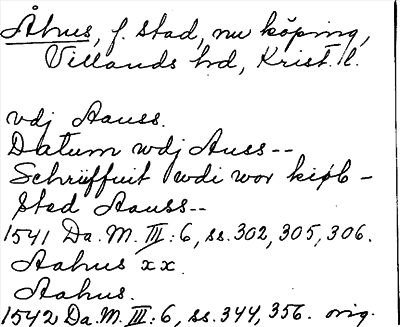 Åhus, f. stad, nu köping,
Villands hd, Krist. l.
vdj Aauss.
Datum wdj Auss--
Schriiffuit wdi wor kiøb-
sted Aauss--
1541 Da. M. III: 6, ss. 302, 305, 306.
Aahus xx.
Aahus.
1542 Da. M. III: 6, ss. 344, 356. orig.